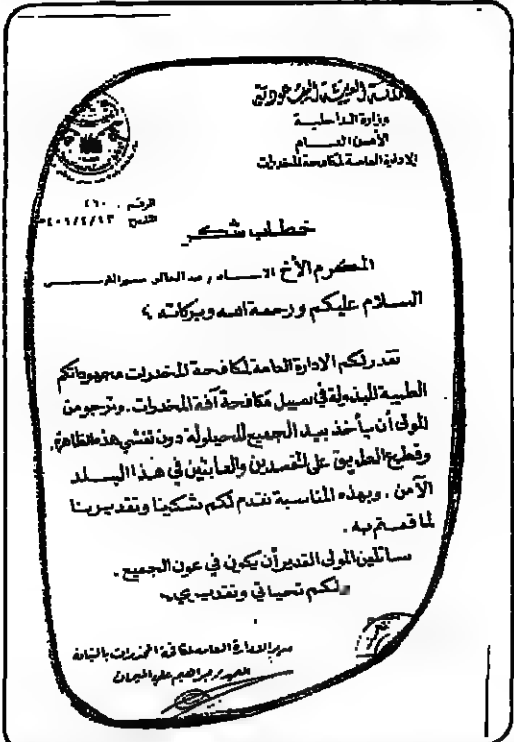 المملكة العربية السعودية
وزارة الداخلية
الأمن العام
الإدارة العامة لمكافحة المخدرات
الرقم . ٤٦٠
التاريخ ١٤٠٦/٤/١٣هـ
خطاب شكر
المكرم الأخ الاستاذ / عبد
السلام عليكم ورحمة الله وبركاته ،
تقدر لكم الإدارة العامة لمكافحة المخدرات مجهوداتكم
الطيبة المبذولة في سبيل مكافحة آفة المخدرات . ونرجو من
المولى أن يأخذ بيد الجميع للحيلولة دون تفشي هذه الظاهرة .
وقطع الطريق على المفسدين والعابثين في هذا البلد
الآمن . وبهذه المناسبة نقدم لكم شكرنا وتقديرنا
لما قمتم به .
سائلين المولى القدير أن يكون في عون الجميع .
ولكم تحياتي وتقديري ،،
مدير الإدارة العامة لمكافحة المخدرات بالنيابة
العميد / إبراهيم